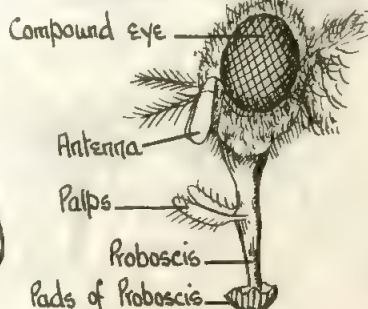 Compound Eye
Antenna
Palps
Proboscis
Pads of Proboscis